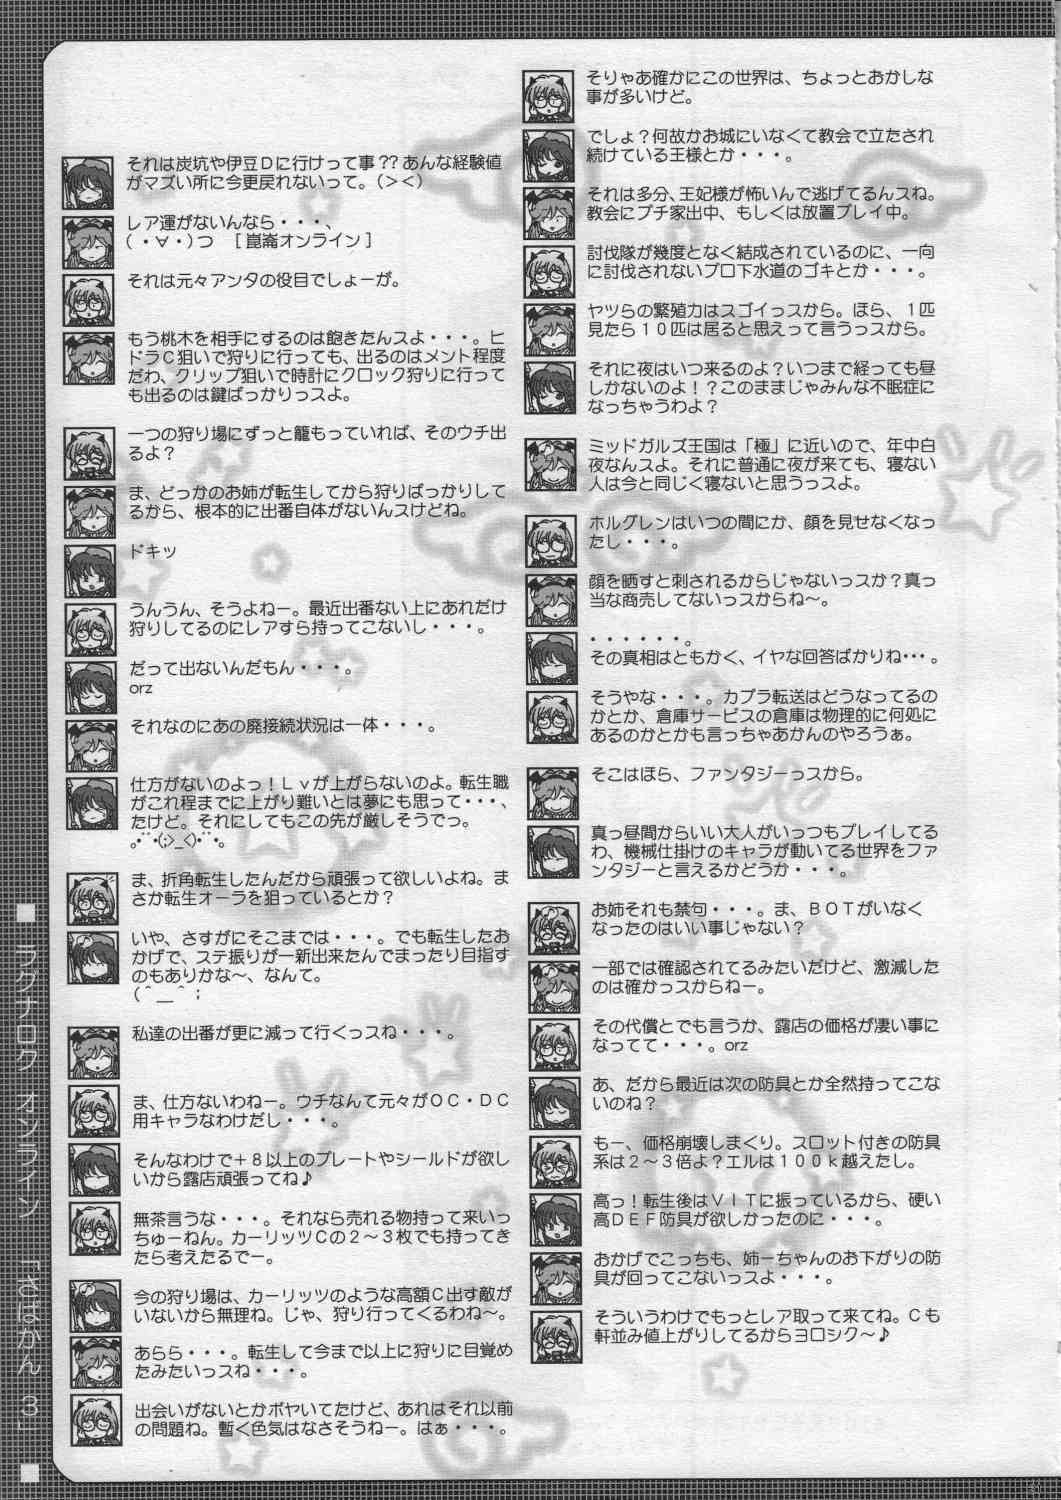 それは炭坑や伊豆Dに行けって事??あんな経験値
がマズい所に今更戻れないって。(><)
レア運がないんなら・・・、
(・∀・)つ　[崑崙オンライン]
それは元々アンタの役目でしょーが。
もう桃木を相手にするのは飽きたんスよ・・・。ヒ
ドラC狙いで狩りに行っても、出るのはメント程度
だわ、クリップ狙いで時計にクロック狩りに行って
も出るのは鍵ばっかりっスよ。
一つの狩り場にずっと籠もっていれば、そのウチ出
るよ?
ま、どっかのお姉が転生してから狩りばっかりして
るから、根本的に出番自体がないんスけどね。
ドキッ
うんうん、そうよねー。最近出番ない上にあれだけ
狩りしてるのにレアすら持ってこないし・・・。
だって出ないんだもん・・・。
orz
それなのにあの廃接続状況は一体・・・。
仕方がないのよっ!Lvが上がらないのよ。転生職
がこれ程までに上がり難いとは夢にも思って・・・、
たけど。それにしてもこの先が厳しそうでっ。
｡･ﾟﾟ･(;>_<)･ﾟﾟ･｡
ま、折角転生したんだから頑張って欲しいよね。ま
さか転生オーラを狙っているとか?
いや、さすがにそこまでは・・・。でも転生したお
かげで、ステ振りが一新出来たんでまったり目指す
のもありかな〜、なんて。
(＾__＾;
私達の出番が更に減って行くっスね・・・。
ま、仕方ないわねー。ウチなんて元々がOC・DC
用キャラなわけだし・・・。
そんなわけで+8以上のプレートやシールドが欲し
いから露店頑張ってね♪
無茶言うな・・・。それなら売れる物持って来いっ
ちゅーねん。カーリッツCの2〜3枚でも持ってき
たら考えたるでー。
今の狩り場は、カーリッツのような高額C出す敵が
いないから無理ね。じゃ、狩り行ってくるわね〜。
あらら・・・。転生して今まで以上に狩りに目覚め
たみたいっスね・・・。
出会いがないとかボヤいてたけど、あれはそれ以前
の問題ね。暫く色気はなさそうねー。はぁ・・・。
そりゃあ確かにこの世界は、ちょっとおかしな
事が多いけど。
でしょ?何故かお城にいなくて教会で立たされ
続けている王様とか・・・。
それは多分、王妃様が怖いんで逃げてるんスね。
教会にプチ家出中、もしくは放置プレイ中。
討伐隊が幾度となく結成されているのに、一向
に討伐されないプロ下水道のゴキとか・・・。
ヤツらの繁殖力はスゴイっスから。ほら、1匹
見たら10匹は居ると思えって言うっスから。
それに夜はいつ来るのよ?いつまで経っても昼
しかないのよ!?このままじゃみんな不眠症に
なっちゃうわよ?
ミッドガルズ王国は「極」に近いので、年中白
夜なんスよ。それに普通に夜が来ても、寝ない
人は今と同じく寝ないと思うっスよ。
ホルグレンはいつの間にか、顔を見せなくなっ
たし・・・。
顔を晒すと刺されるからじゃないっスか?真っ
当な商売してないっスからね〜。
・・・・・・。
その真相はともかく、イヤな回答ばかりね・・・。
そうやな・・・。カプラ転送はどうなってるの
かとか、倉庫サービスの倉庫は物理的に何処に
あるのかとかも言っちゃあかんのやろうぁ。
そこはほら、ファンタジーっスから。
真っ昼間からいい大人がいっつもプレイしてる
わ、機械仕掛けのキャラが動いてる世界をファ
ンタジーと言えるかどうか・・・。
お姉それも禁句・・・。ま、BOTがいなく
なったのはいい事じゃない?
一部では確認されてるみたいだけど、激減した
のは確かっスからねー。
その代償とでも言うか、露店の価格が凄い事に
なってて・・・。orz
あ、だから最近は次の防具とか全然持ってこな
いのね?
もー、価格崩壊しまくり。スロット付きの防具
系は2〜3倍よ?エルは100k越えたし。
高っ!転生後はVITに振っているから、硬い
高DEF防具が欲しかったのに・・・。
おかげでこっちも、姉ーちゃんのお下がりの防
具が回ってこないっスよ・・・。
そういうわけでもっとレア取って来てね。Cも
軒並み値上がりしてるからヨロシク〜♪
■ ラグナロク オンライン 「さばかん3」 ■